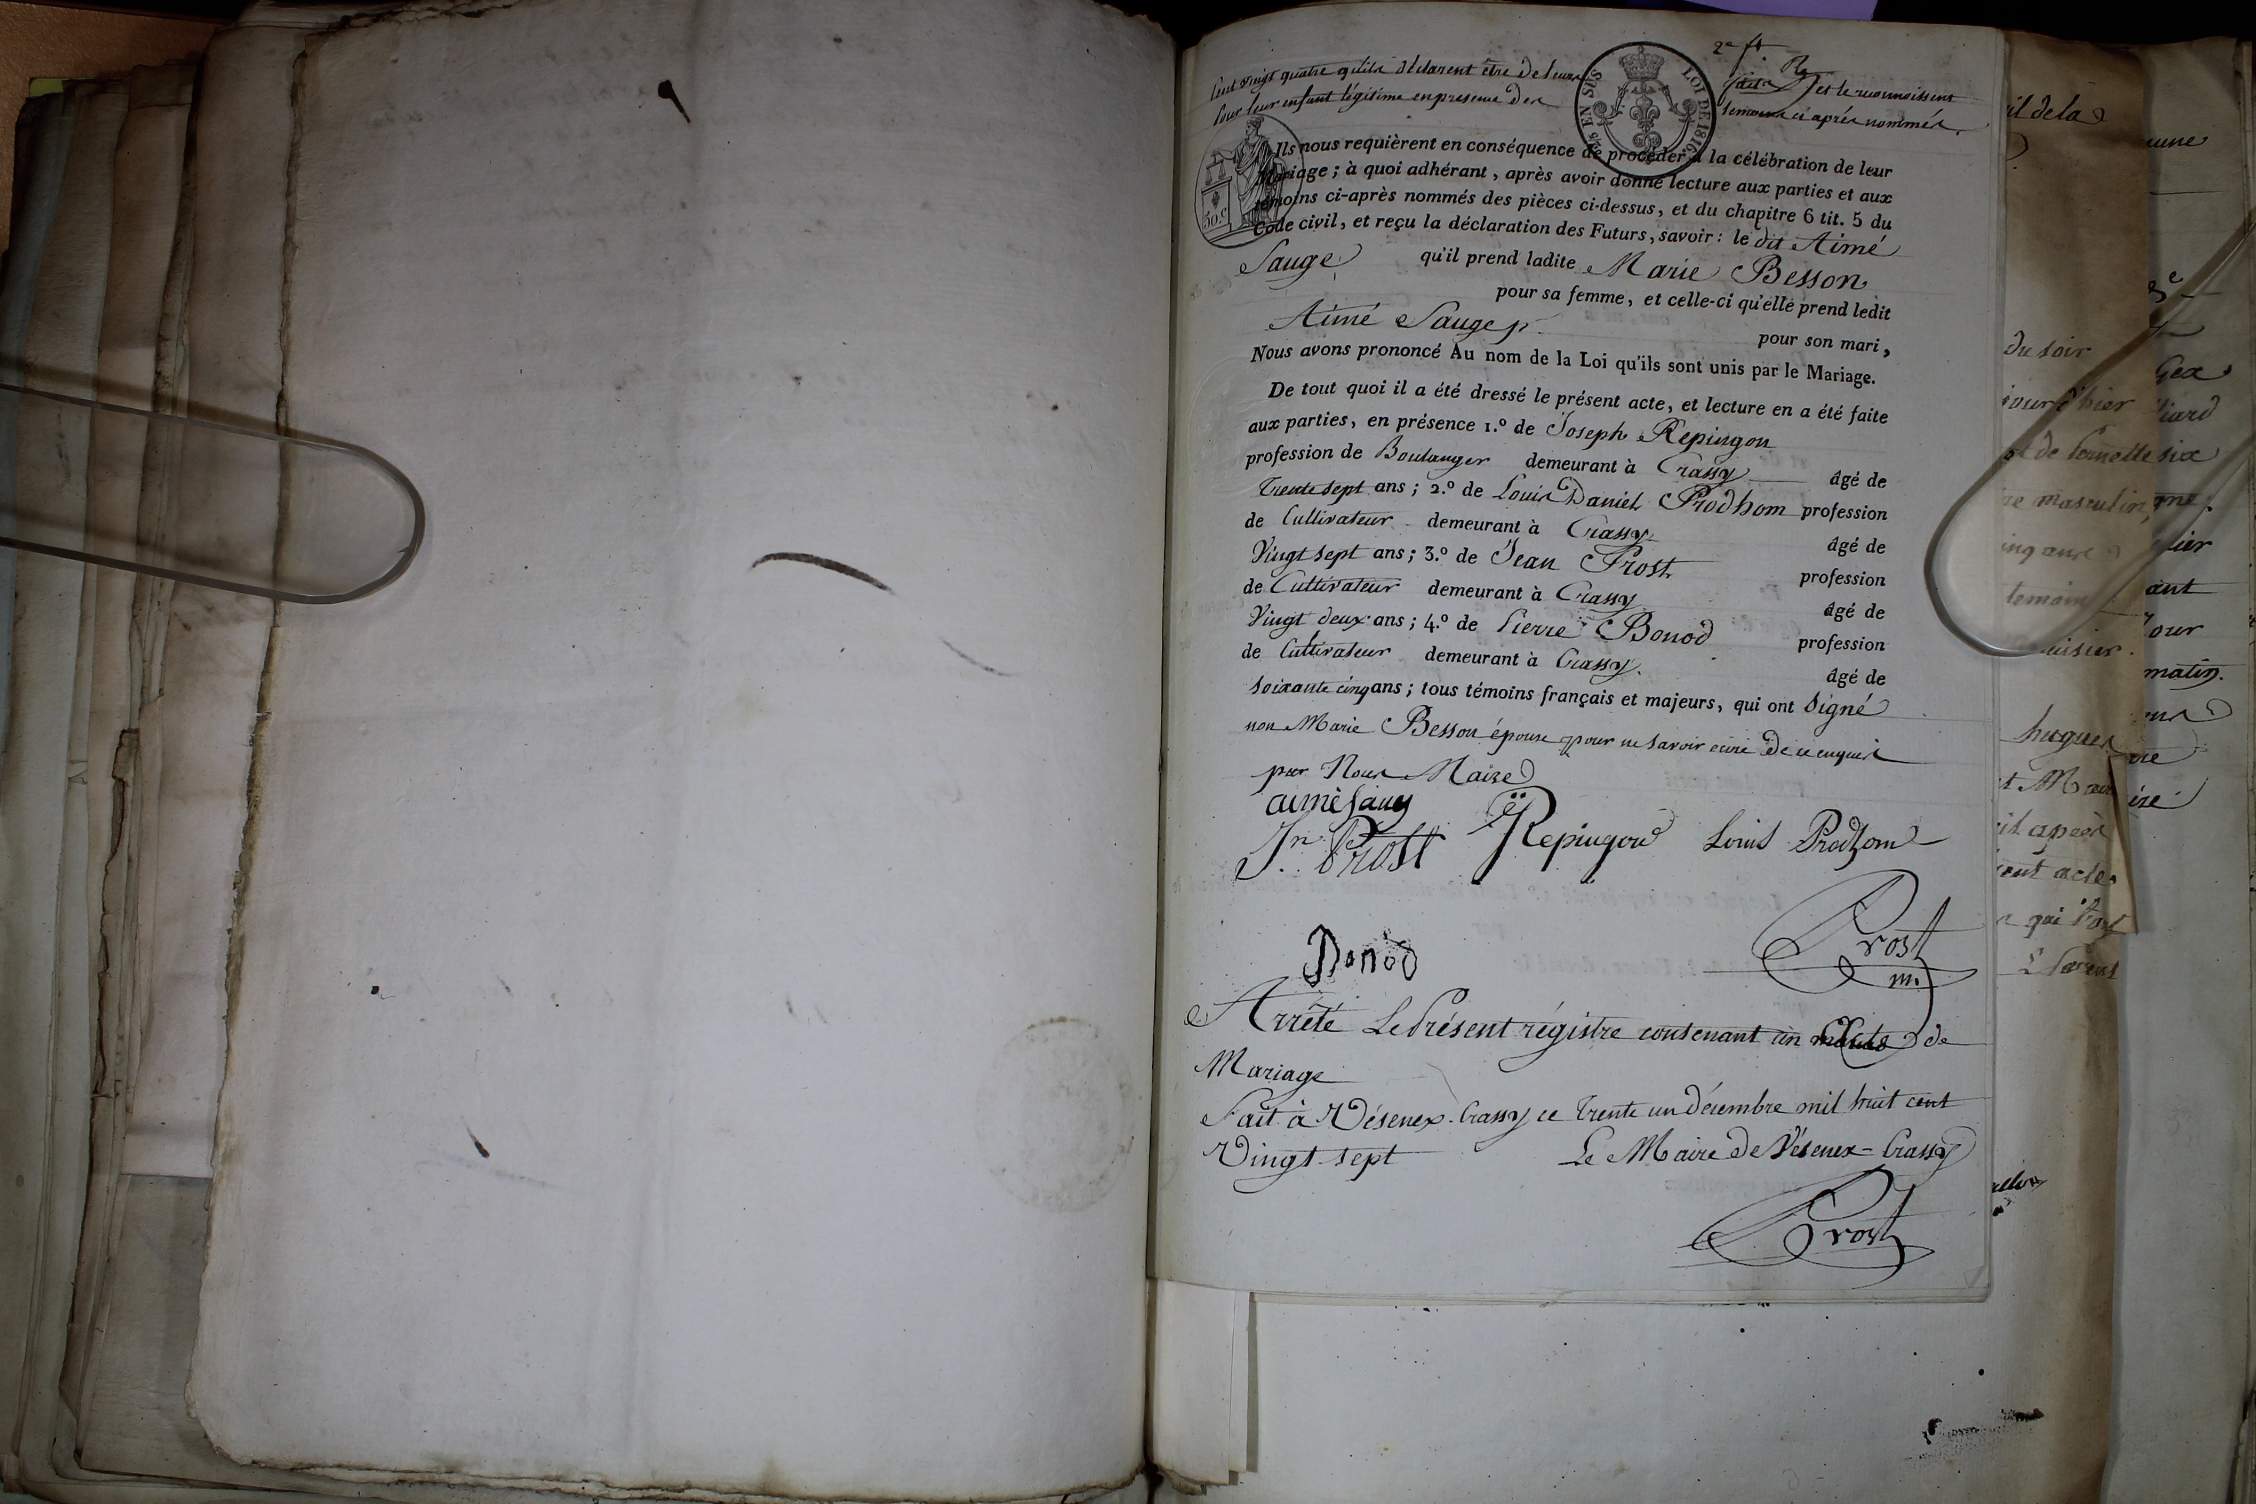 2e ft
Cent vingt quatre qu'ils déclarent être de leurs faits et le reconnoissent
Pour leur enfant légitime en presence des temoins ci après nommés.
3/15 EN SUS LOI DE 1816
50.c
Ils nous requièrent en conséquence de procéder à la célébration de leur
Mariage ; à quoi adhérant, après avoir donné lecture aux parties et aux
témoins ci-après nommés des pièces ci-dessus, et du chapitre 6 tit. 5 du
Code civil, et reçu la déclaration des Futurs, savoir : le dit Aimé
Sauge qu'il prend ladite Marie Besson
pour sa femme, et celle-ci qu'elle prend ledit
Aimé Sauge
pour son mari,
Nous avons prononcé Au nom de la Loi qu'ils sont unis par le Mariage.
De tout quoi il a été dressé le présent acte, et lecture en a été faite
aux parties, en présence 1.º de Joseph Repingon
profession de Boulanger demeurant à Crassy âgé de
Trente sept ans ; 2.º de Louis Daniel Prodhom profession
de Cultivateur demeurant à Crassy âgé de
Vingt sept ans ; 3.º de Jean Prost profession
de Cultivateur demeurant à Crassy âgé de
Vingt deux ans ; 4.º de Pierre Bonod profession
de Cultivateur demeurant à Crassy. âgé de
soixante cinq ans ; tous témoins français et majeurs, qui ont signé
non Marie Besson épouse pour ne savoir ecrire de ce enquis
par Nous Maire
aimé Sauge
Jn Prost Repingon Louis Prodhom
Bonod
Prost
m.
Arrêté Le Présent régistre contenant un acte de
Mariage
Fait à Vésenex-Crassy ce Trente un décembre mil huit cent
Vingt sept Le Maire de Vésenex-Crassy
Prost
il de la
du soir
jour d'hier
masculin,
hugues
apees
acte
qui
Gex
matin.